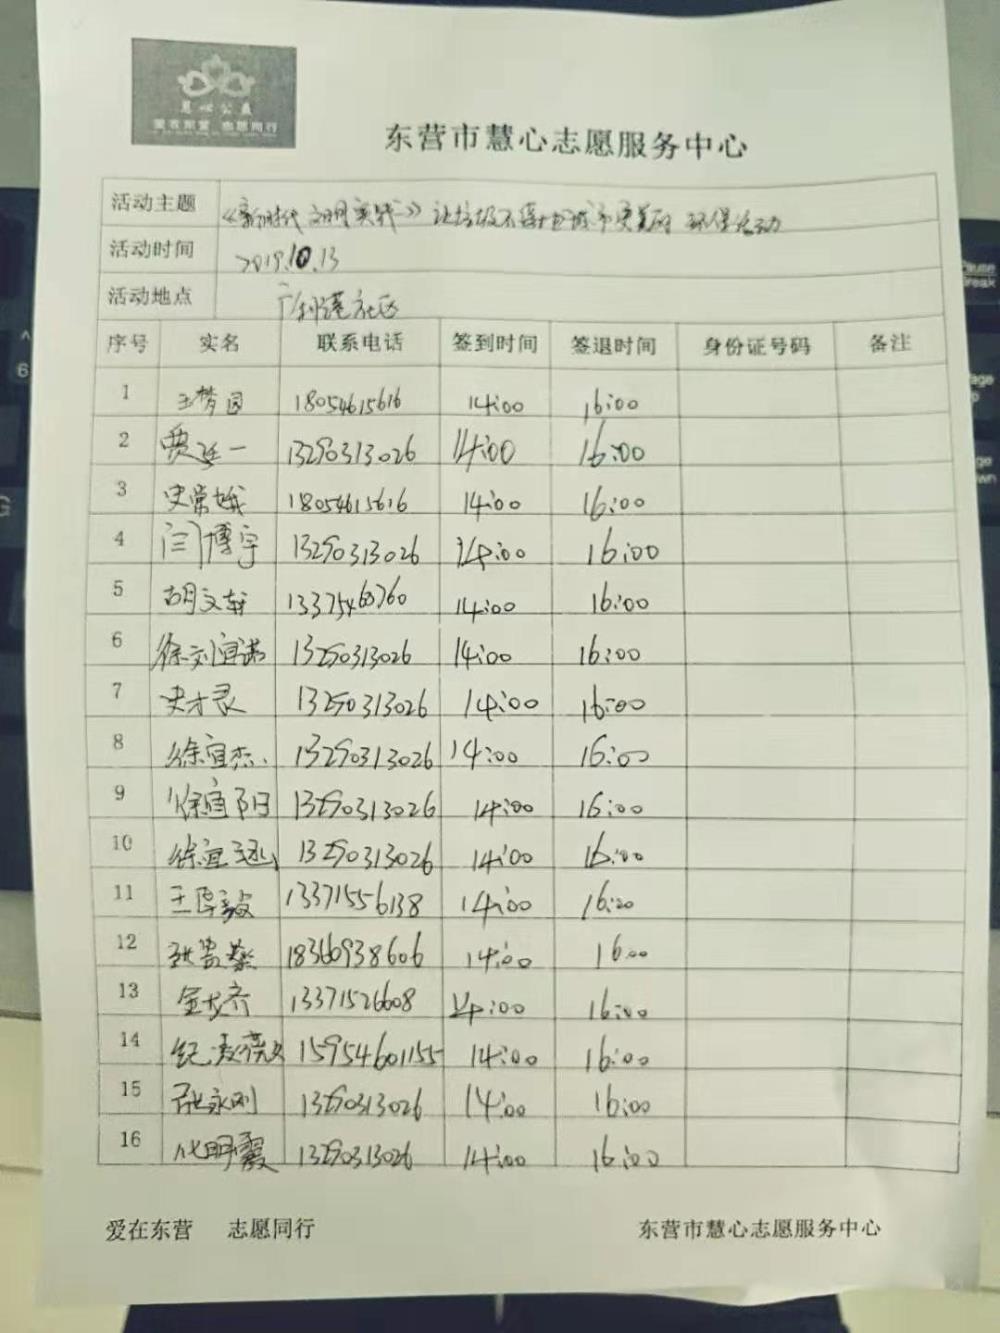 慧心公益
爱在东营 志愿同行
东营市慧心志愿服务中心
活动主题 《新时代文明实践》让垃圾不落地 城市更美丽 环保活动
活动时间 2019.10.13
活动地点 广利港社区
序号 实名 联系电话 签到时间 签退时间 身份证号码 备注
1 王梦园 18054615616 14:00 16:00
2 贾廷一 13290313026 14:00 16:00
3 史常娥 18054615616 14:00 16:00
4 闫博宇 13290313026 14:00 16:00
5 胡文轩 13375460760 14:00 16:00
6 徐刘宜诺 13290313026 14:00 16:00
7 史才灵 13290313026 14:00 16:00
8 徐宜杰 13290313026 14:00 16:00
9 徐宜阳 13290313026 14:00 16:00
10 徐宜 13290313026 14:00 16:00
11 王厚毅 13371556138 14:00 16:00
12 张 18360938606 14:00 16:00
13 金 13371526608 14:00 16:00
14 纪凌薇 15954601155 14:00 16:00
15 张永刚 13290313026 14:00 16:00
16 代明霞 13290313026 14:00 16:00
爱在东营 志愿同行 东营市慧心志愿服务中心